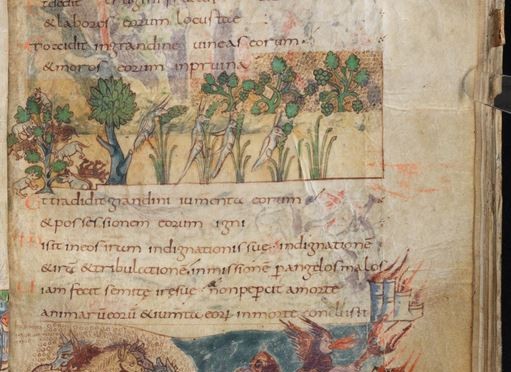 & labores eorum locustae
&occidit ingrandine uineas eorum
& moros eorum inpruina
Et tradidit grandini iumenta eorum
& possessionem eorum igni
isit ineos iram indignationis suę indignatione
& irā & tribulatione inmissione p angelos malos
iam fecit semitę irę suę non pepercit amorte
eorū & iumta eorū inmorte conclusit